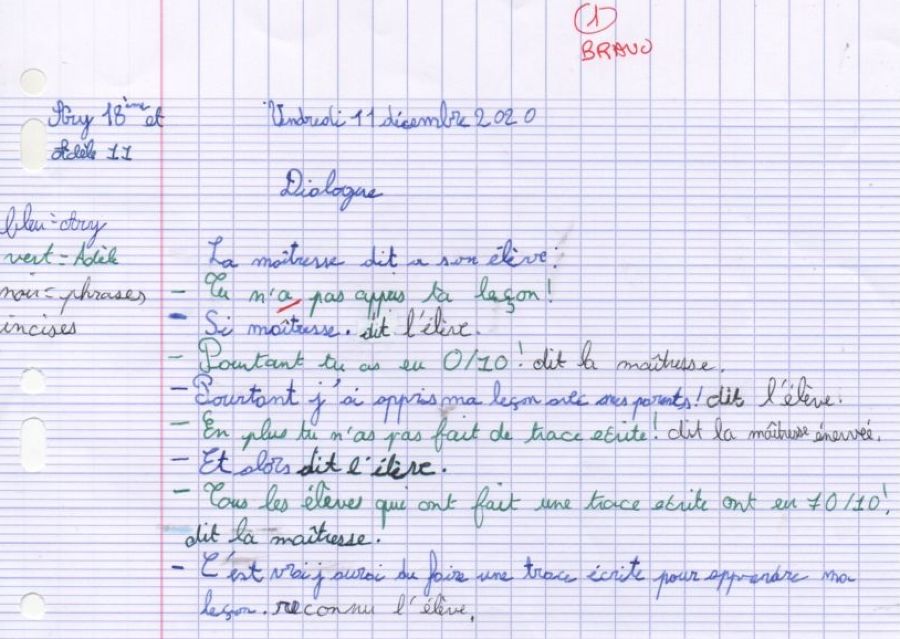 1
BRAVO
Ary 18ème et
Adèle 11
Vendredi 11 décembre 2020
Dialogue
bleu = Ary
vert = Adèle
noir = phrases
incises
La maîtresse dit a son élève:
- Tu n'a pas appris ta leçon!
- Si maîtresse. dit l'élève.
- Pourtant tu as eu 0/10! dit la maîtresse.
- Pourtant j'ai appris ma leçon avec mes parents! dit l'élève.
- En plus tu n'as pas fait de trace ecrite! dit la maîtresse énervée.
- Et alors dit l'élève.
- Tous les élèves qui ont fait une trace ecrite ont eu 10/10!
dit la maîtresse.
- C'est vrai j'aurai du faire une trace écrite pour apprendre ma
leçon. reconnu l'élève.